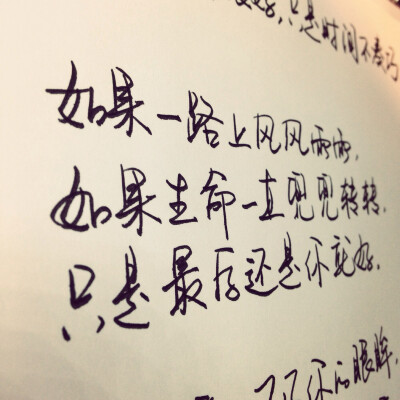 只是时间不凑巧
如果一路上风风雨雨,
如果生命一直兜兜转转,
只是最后还是你就好.
你的眼眸,